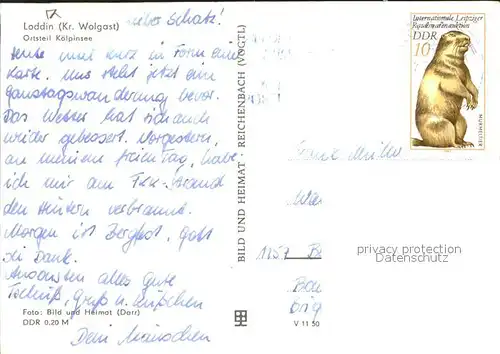 Loddin (Kr. Wolgast)
Ortsteil Kölpinsee
Lieber Schatz!
Heute mal kurz in Form einer
Karte. Uns steht jetzt ein
Ganztagswanderung bevor.
Das Wetter hat sich auch
wieder gebessert. Vorgestern,
an meinem freien Tag, habe
ich mir am FKK-Strand
den Hintern verbrannt.
Morgen ist Bergfest, Gott
sei Dank.
Ansonsten alles gute
Tschüß, Gruß u. Küßchen
Dein Mäuschen
Foto: Bild und Heimat (Darr)
DDR 0,20 M
BILD UND HEIMAT · REICHENBACH (VOGTL)
V 11 50
Internationale Leipziger
Rauchwarenauktion
DDR
10
MURMELTIER
1857 B
privacy protection